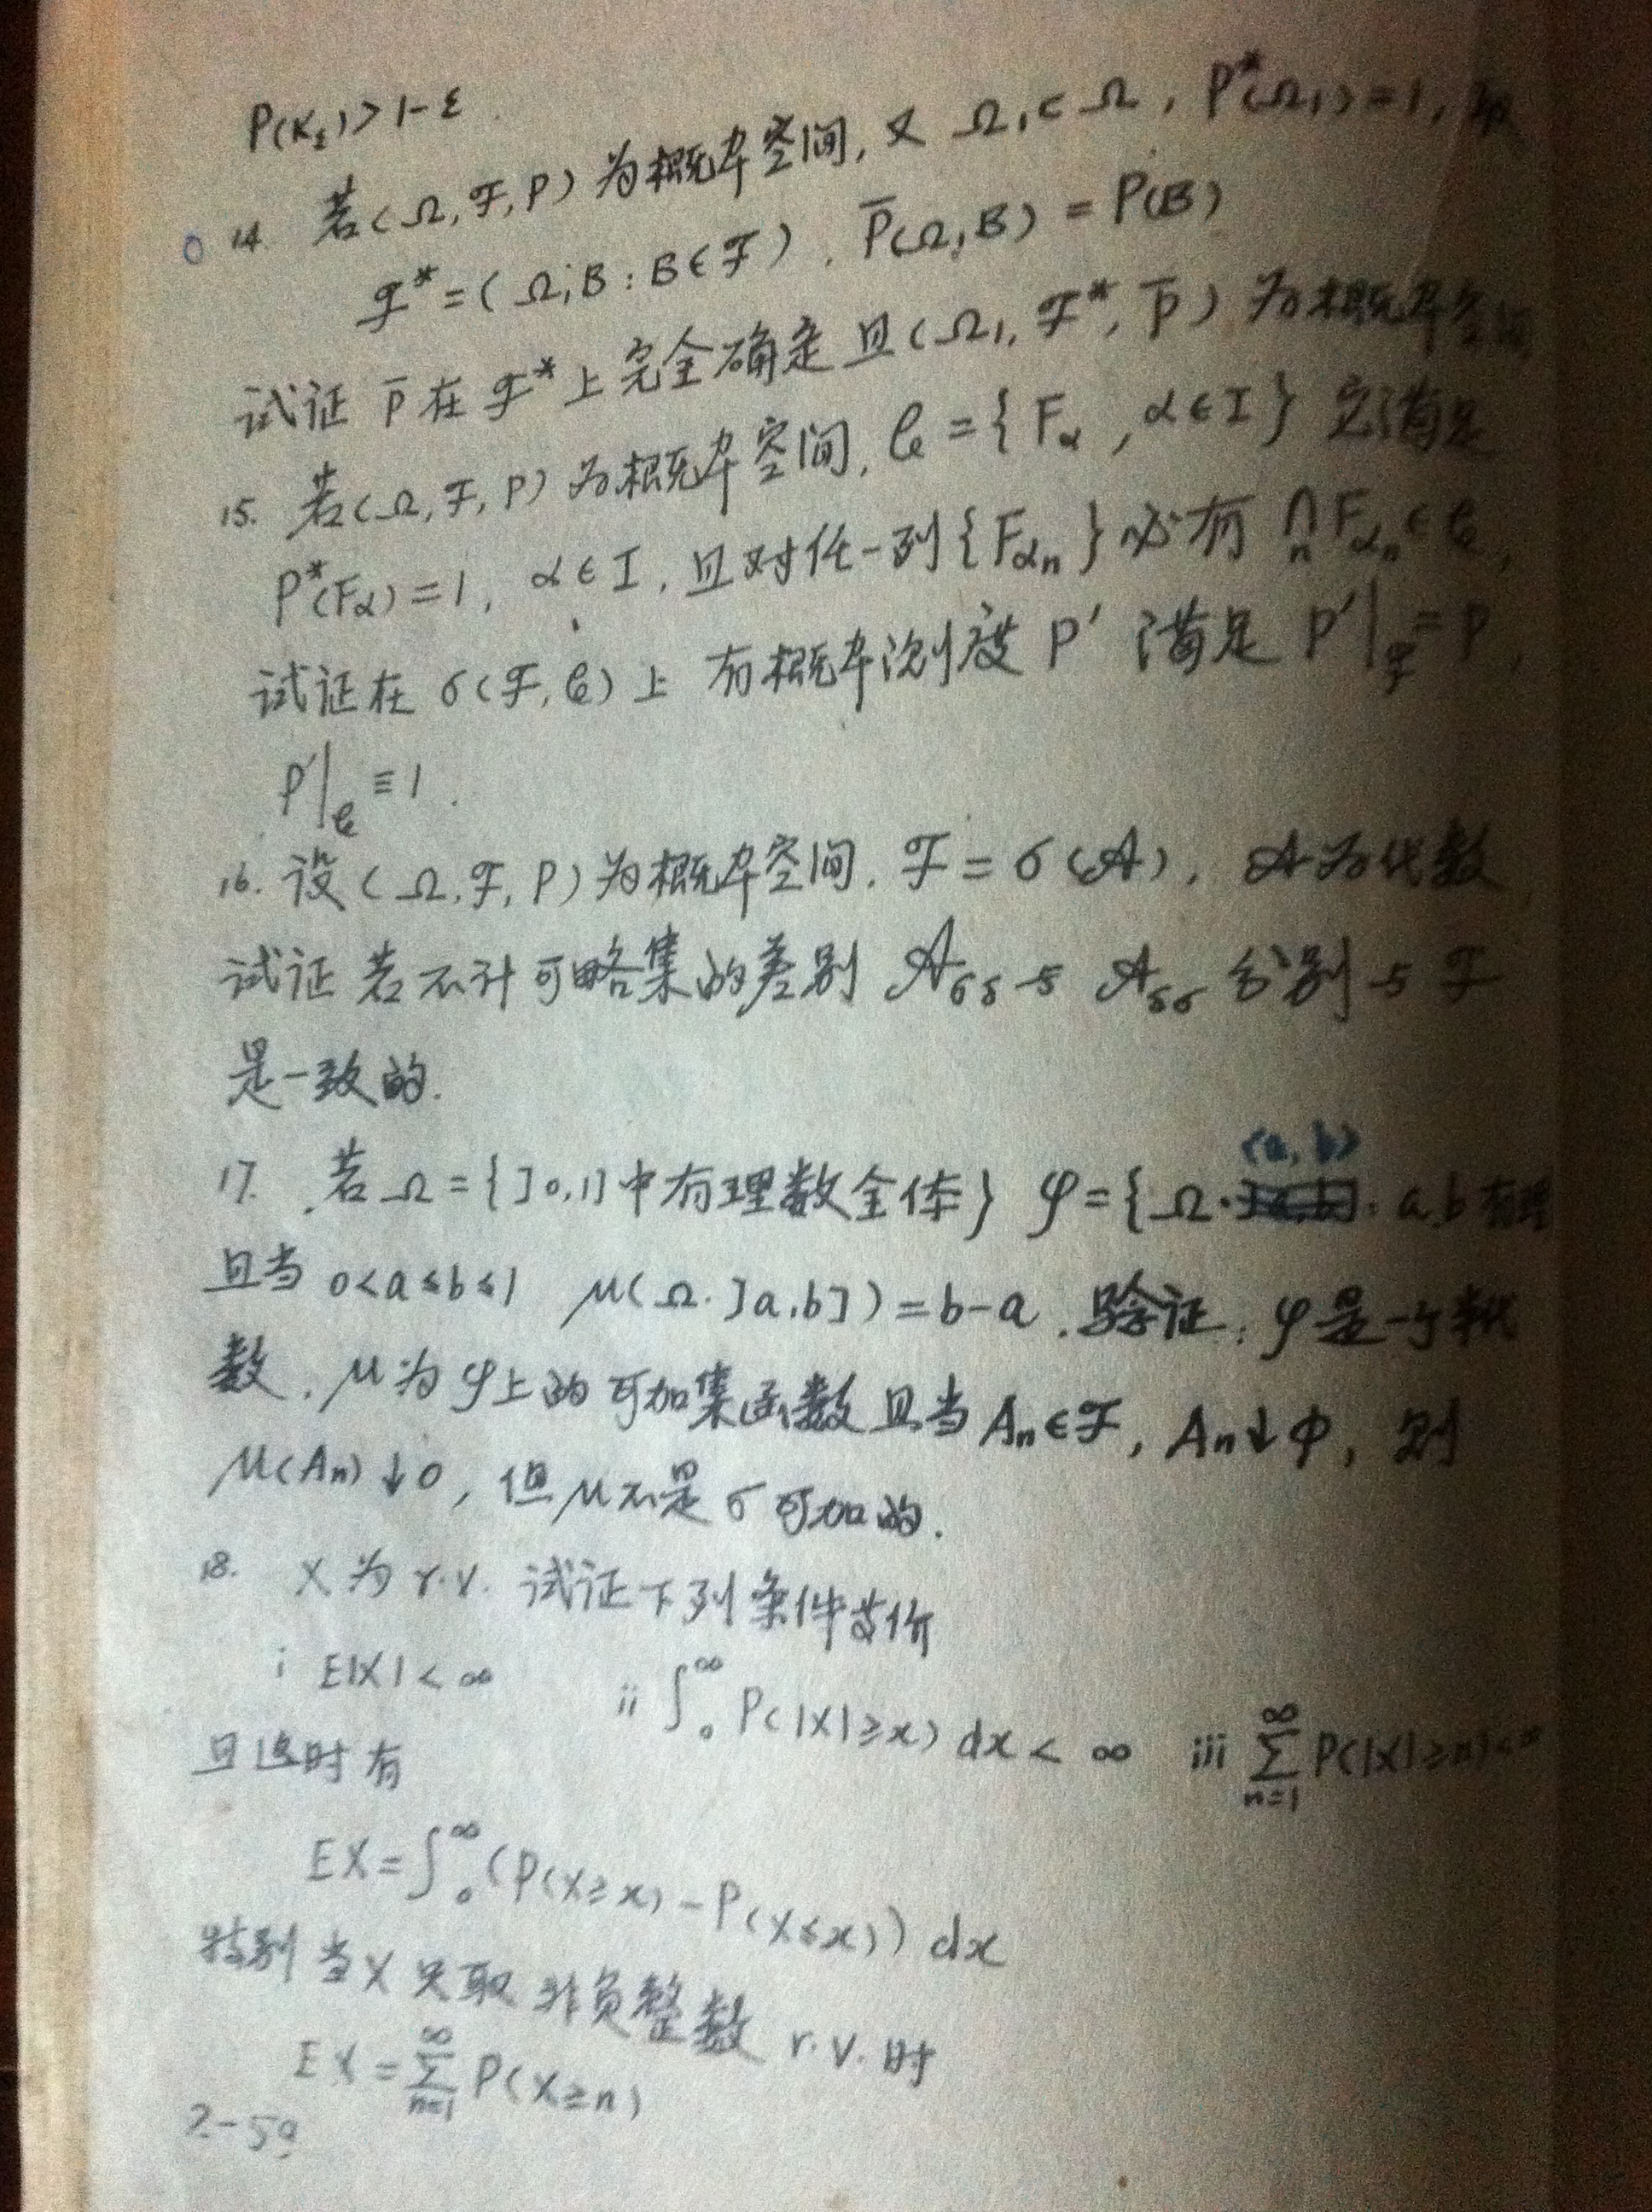 P(Kε)>1-ε.
14. 若(Ω,ℱ,P)为概率空间,又 Ω₁⊂Ω, P*(Ω₁)=1,
ℱ*=(Ω₁B:B∈ℱ). P̄(Ω₁B)=P(B)
试证 P̄在ℱ*上完全确定且(Ω₁,ℱ*,P̄)为概率空间
15. 若(Ω,ℱ,P)为概率空间, 𝒞={Fα,α∈I} 它满足
P*(Fα)=1, α∈I, 且对任一列{Fαn}必有 ∩ₙFαn∈𝒞,
试证在 σ(ℱ,𝒞)上 有概率测度 P' 满足 P'|ℱ=P,
P'|𝒞≡1.
16. 设(Ω,ℱ,P)为概率空间. ℱ=σ(𝒜), 𝒜为代数
试证 若不计可略集的差别 𝒜σδ与 𝒜δσ 分别与 ℱ
是一致的.
<a,b>
17. 若Ω={]0,1]中有理数全体} 𝒮={Ω· : a,b有理
且当 0<a≤b≤1 μ(Ω·]a,b])=b-a. 验证: 𝒮是一个半代
数, μ为𝒮上的可加集函数且当 Aₙ∈ℱ, Aₙ↓φ, 则
μ(Aₙ)↓0, 但μ不是σ可加的.
18. X为 r.v. 试证下列条件等价
i E|X|<∞ ii ∫₀^∞ P(|X|≥x)dx<∞ iii ∑_{n=1}^∞ P(|X|≥n)<∞
且这时有
EX=∫₀^∞(P(X≥x)-P(X≤x))dx
特别当X只取非负整数 r.v.时
EX=∑_{n=1}^∞ P(X≥n)
2-59